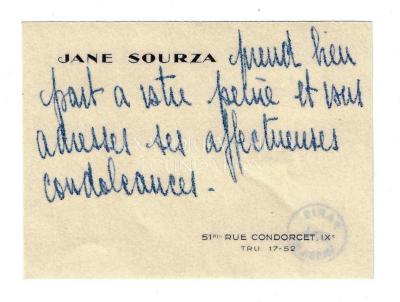 JANE SOURZA prend bien
part a votre peine et vous
adresses ses affectueuses
condoleances.
51BIS RUE CONDORCET, IXe
TRU. 17-52